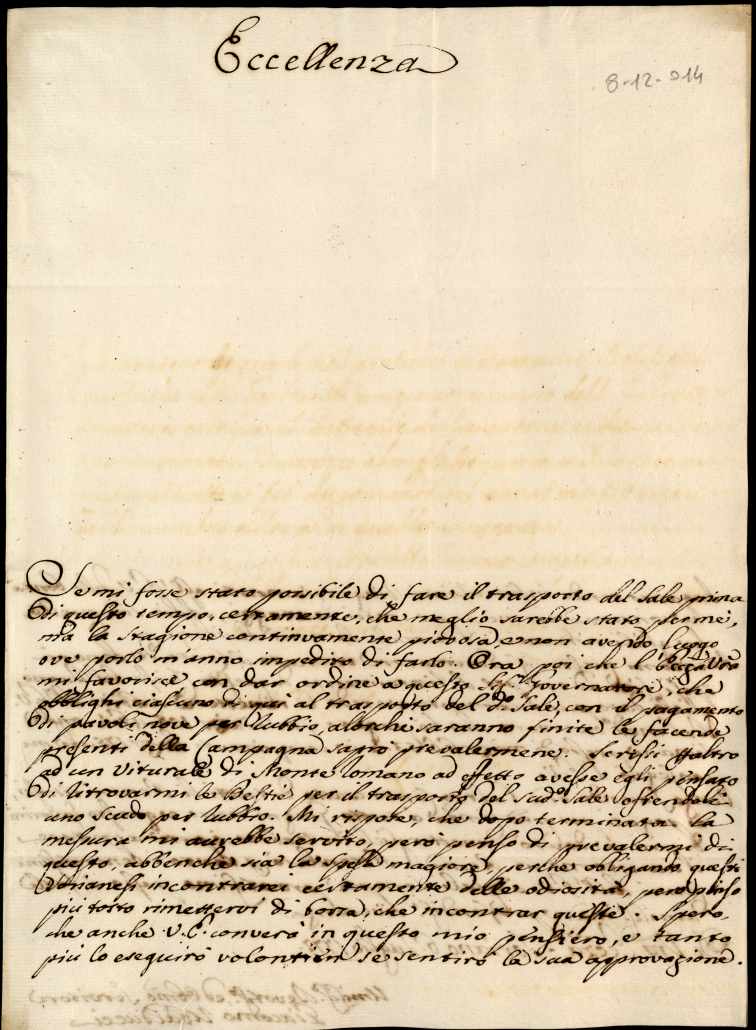 Eccellenza
8-12-014
Se mi fosse stato possibile di fare il trasporto del Sale prima
di questo tempo, certamente, che meglio sarebbe stato per me,
ma la Stagione continuamente piovosa, e non avendo luogo
ove porlo m'anno impedito di farlo. Ora poi che l'Ecc.za Vra
mi favorisce con dar ordine a questo Sig.r Governatore, che
obblighi ciascuno di qui al trasporto del d.o Sale, con il pagamento
di pavoli nove per Rubbio, alorchè saranno finite le facende
presenti della Campagna saprò prevalermene. Scrissi
ad un Viturale di Monte Romano ad effetto avesse egli pensato
di ritrovarmi le Bestie per il trasporto del sud.o Sale ofrendoli
uno Scudo per Rubbio. Mi rispose, che dopo terminata la
messura mi aurebbe servito, però penso di prevalermi di
questo, abbenche sia la spesa magiore, perche obligando questi
incontrarei certamente delle odiosità, però penso
più tosto rimettervi di borsa, che incontrar queste. Spero,
che anche V.E. converà in questo mio pensiero, e tanto
più lo eseguirò volontieri se sentirò la sua approvazione.